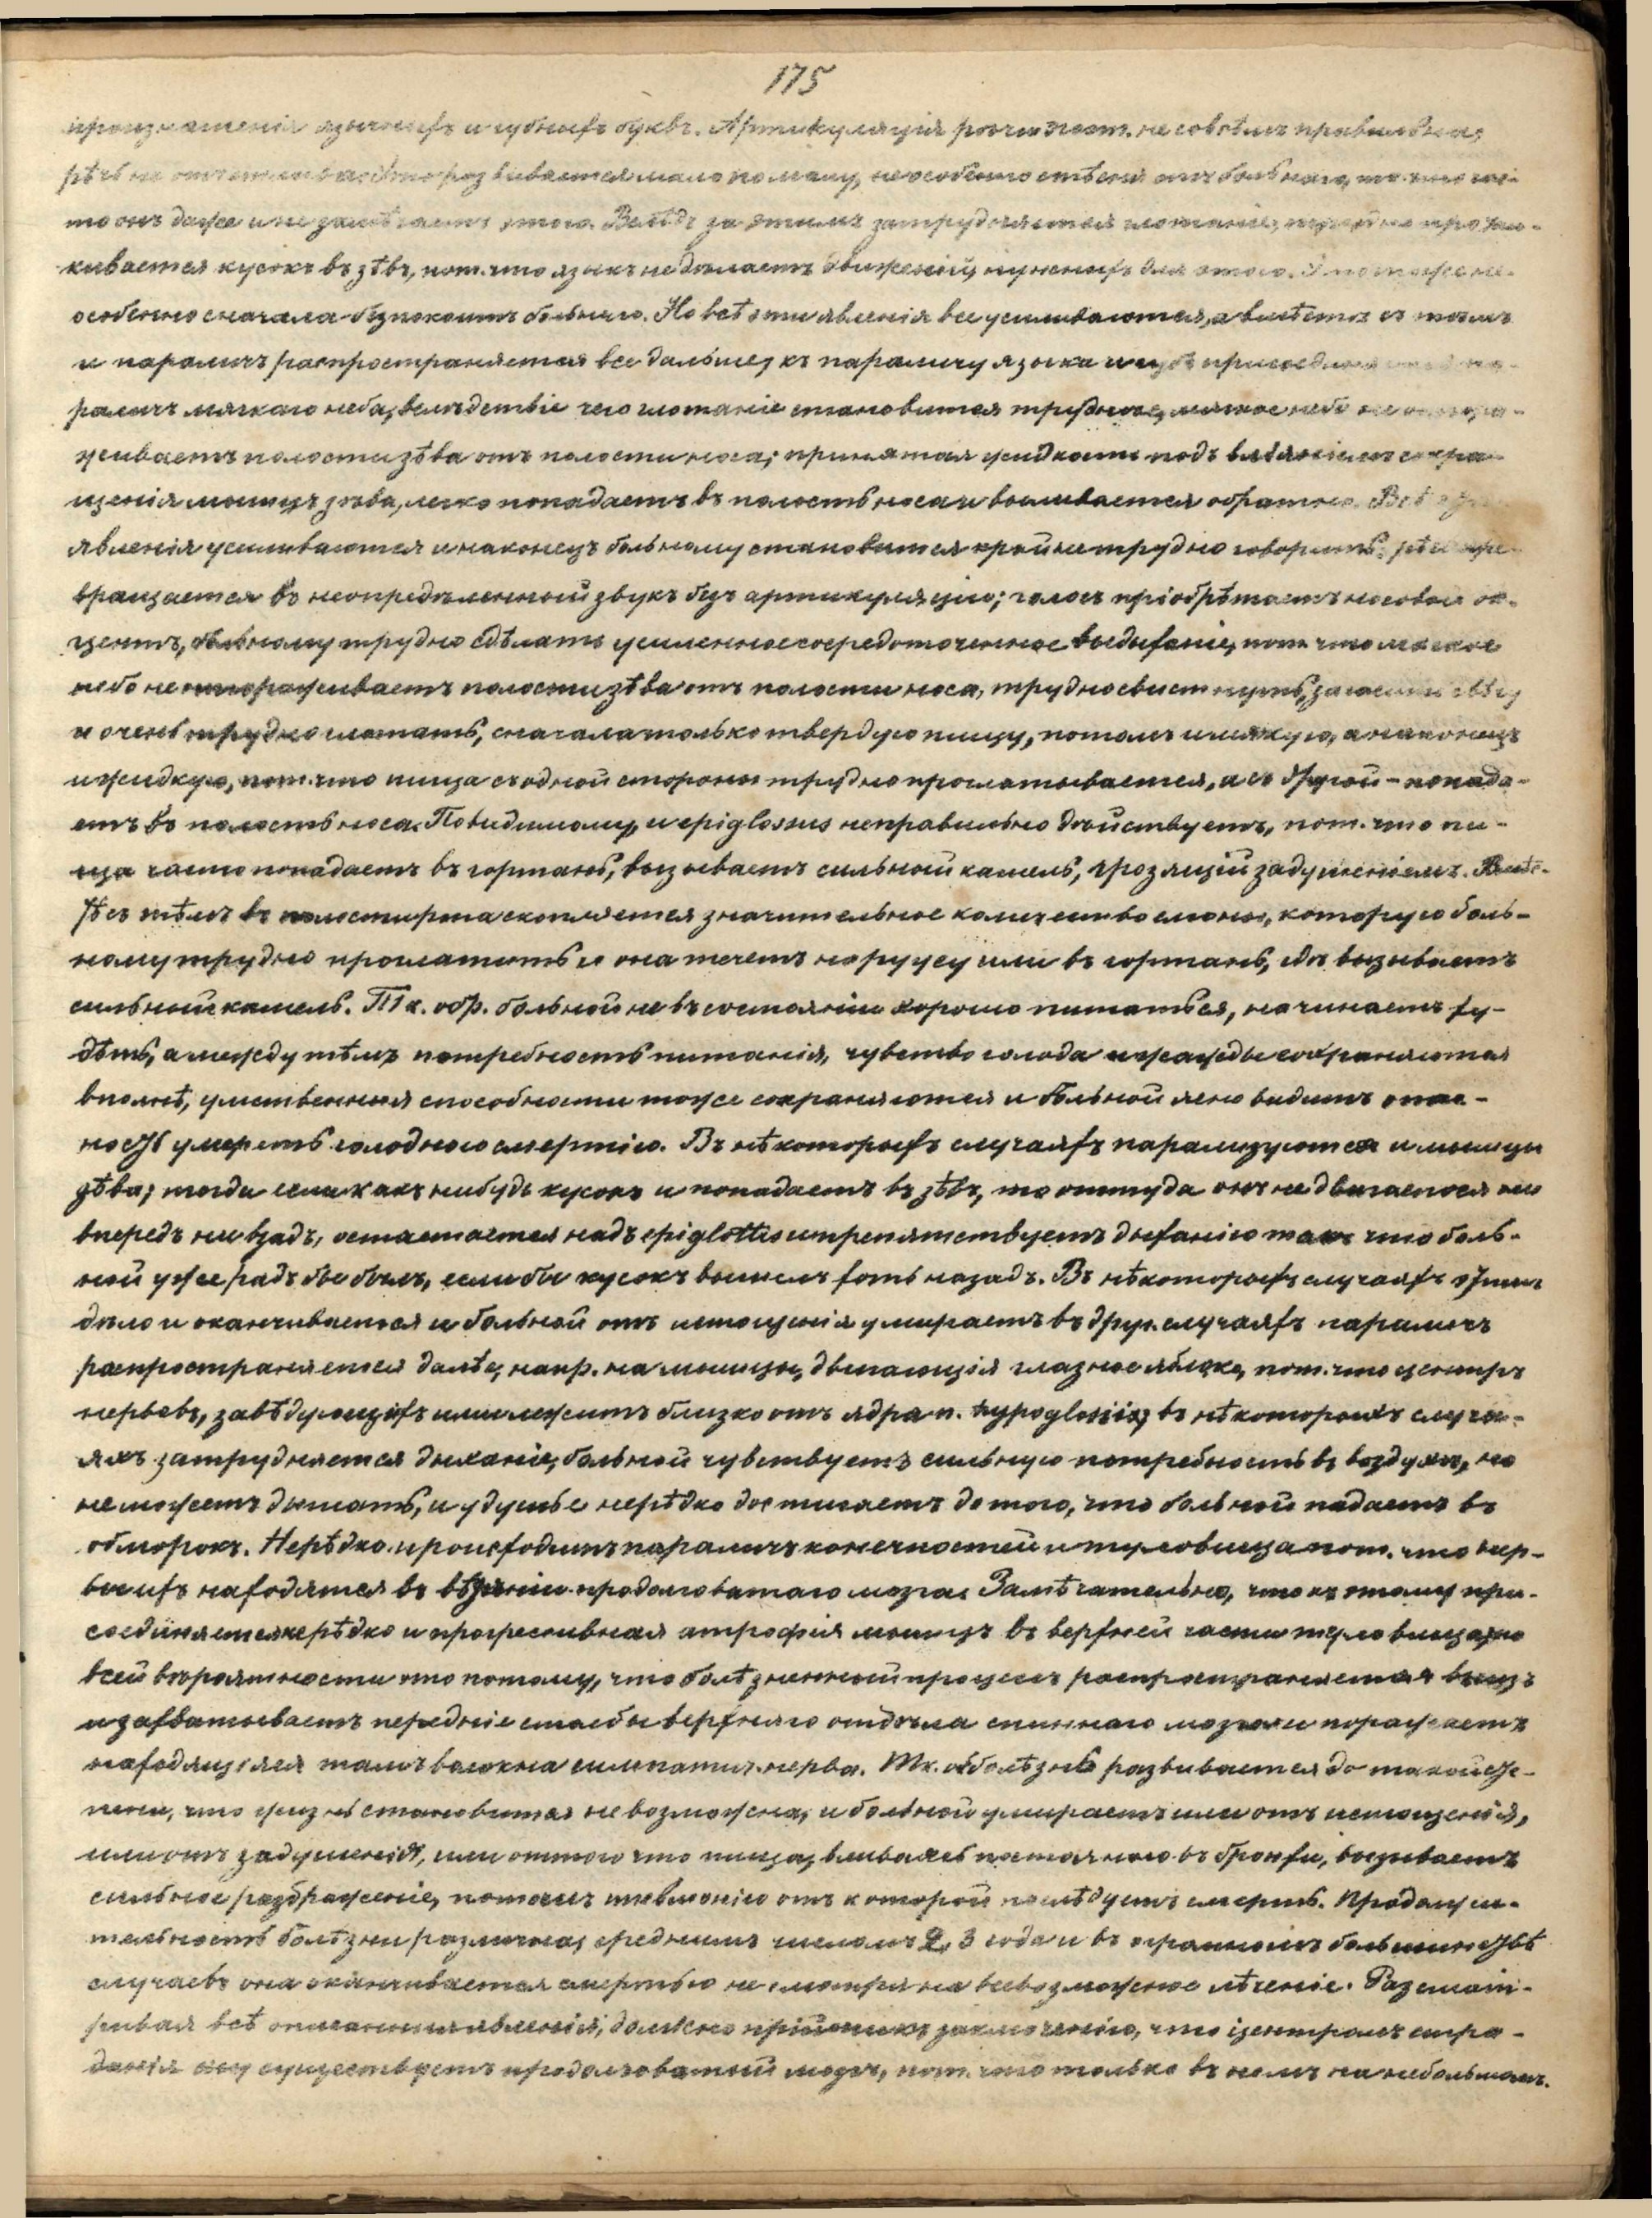 175
произношенія язычныхъ и губныхъ буквъ. Артикуляція рѣчи поэт. не совсѣмъ правильна,
рѣчь не отчетлива. Это развивается мало по малу, не особенно стѣсняя больнаго, т.
то онъ даже и не замѣчаетъ этого. Вслѣдъ за этимъ затрудняется глотаніе, трудно протал-
кивается кусокъ въ зѣвъ, пот. что языкъ не дѣлаетъ движеній, нужныхъ для этого. И это тоже не
особенно сначала безпокоитъ больнаго. Но всѣ эти явленія все усиливаются, а вмѣстѣ съ тѣмъ
и параличъ распространяется все дальше, къ параличу языка и губъ присоединяется па-
раличъ мягкаго неба, вслѣдствіе чего глотаніе становится труднѣе, мягкое небо не отгора-
живаетъ полости зѣва отъ полости носа; принятая жидкость подъ вліяніемъ сокра-
щенія мышцъ зѣва, легко попадаетъ въ полость носа и выливается обратно. Всѣ эти
явленія усиливаются и наконецъ больному становится крайне трудно говорить, рѣчь пре-
вращается въ неопредѣленный звукъ безъ артикуляціи; голосъ пріобрѣтаетъ носовой ак-
центъ, больному трудно сдѣлать усиленное сосредоточенное выдыханіе, пот. что мягкое
небо не отгораживаетъ полости зѣва отъ полости носа, трудно свистнуть, загасить свѣчу
и очень трудно глотать, сначала только твердую пищу, потомъ и мягкую, а наконецъ
и жидкую, пот. что пища съ одной стороны трудно проглатывается, а съ другой – попада-
етъ въ полость носа. Повидимому, и epiglossus неправильно дѣйствуетъ, пот. что пи-
ща часто попадаетъ въ гортань, вызываетъ сильный кашель, грозящій задушеніемъ. Вмѣс-
тѣ съ тѣмъ въ полости рта скопляется значительное количество слюны, которую боль-
ному трудно проглатить и она течетъ наружу или въ гортань, гдѣ вызываетъ
сильный кашель. Так. обр. больной не въ состояніи хорошо питаться, начинаетъ ху-
дѣть, а между тѣмъ потребность питанія, чувство голода и жажды сохраняются
вполнѣ, умственныя способности тоже сохраняются и больной ясно видитъ опас-
ность умереть голодною смертію. Въ нѣкоторыхъ случаяхъ парализуются и мышцы
зѣва; тогда если какъ нибудь кусокъ и попадаетъ въ зѣвъ, то оттуда онъ не двигается ни
впередъ ни взадъ, останется надъ epiglottis и препятствуетъ дыханію такъ что боль-
ной уже радъ бы былъ, если бы кусокъ вышелъ хоть назадъ. Въ нѣкоторыхъ случаяхъ этимъ
дѣло и оканчивается и больной отъ истощенія умираетъ въ друг. случаяхъ параличъ
распространяется далѣе, напр. на мышцы, двигающія глазное яблоко, пот. что центръ
нервовъ, завѣдующихъ ими лежитъ близко отъ ядра n. hypoglossi; въ нѣкоторыхъ случа-
яхъ затрудняется дыханіе, больной чувствуетъ сильную потребность въ воздухѣ, но
не можетъ дышать, и удушье нерѣдко достигаетъ до того, что больной падаетъ въ
обморокъ. Нерѣдко происходитъ параличъ конечностей и туловища пот. что нер-
вы ихъ находятся въ вѣдѣніи продолговатаго мозга. Замѣчательно, что къ этому при-
соединяется нерѣдко и прогрессивная атрофія мышцъ въ верхней части туловища, по
всей вѣроятности это потому, что болѣзненный процессъ распространяется внизъ
и захватываетъ передніе столбы верхняго отдѣла спиннаго мозга и поражаетъ
находящіяся тамъ волокна симпатич. нерва. Тк. об болѣзнь развивается до такой сте-
пени, что жизнь становится невозможна, и больной умираетъ или отъ истощенія,
или отъ задушенія, или оттого что пища, вливаясь постоянно въ бронхи, вызываетъ
сильное раздраженіе, потомъ пневмонію отъ которой послѣдуетъ смерть. Продолжи-
тельность болѣзни различна, среднимъ числомъ 2, 3 года и въ огромномъ большинствѣ
случаевъ она оканчивается смертью не смотря на всевозможное лѣченіе. Разсмат-
ривая всѣ описанныя явленія, должно прійти къ заключенію, что центромъ стра-
данія существуетъ продолговатый мозгъ, пот. что только въ немъ на небольшомъ.